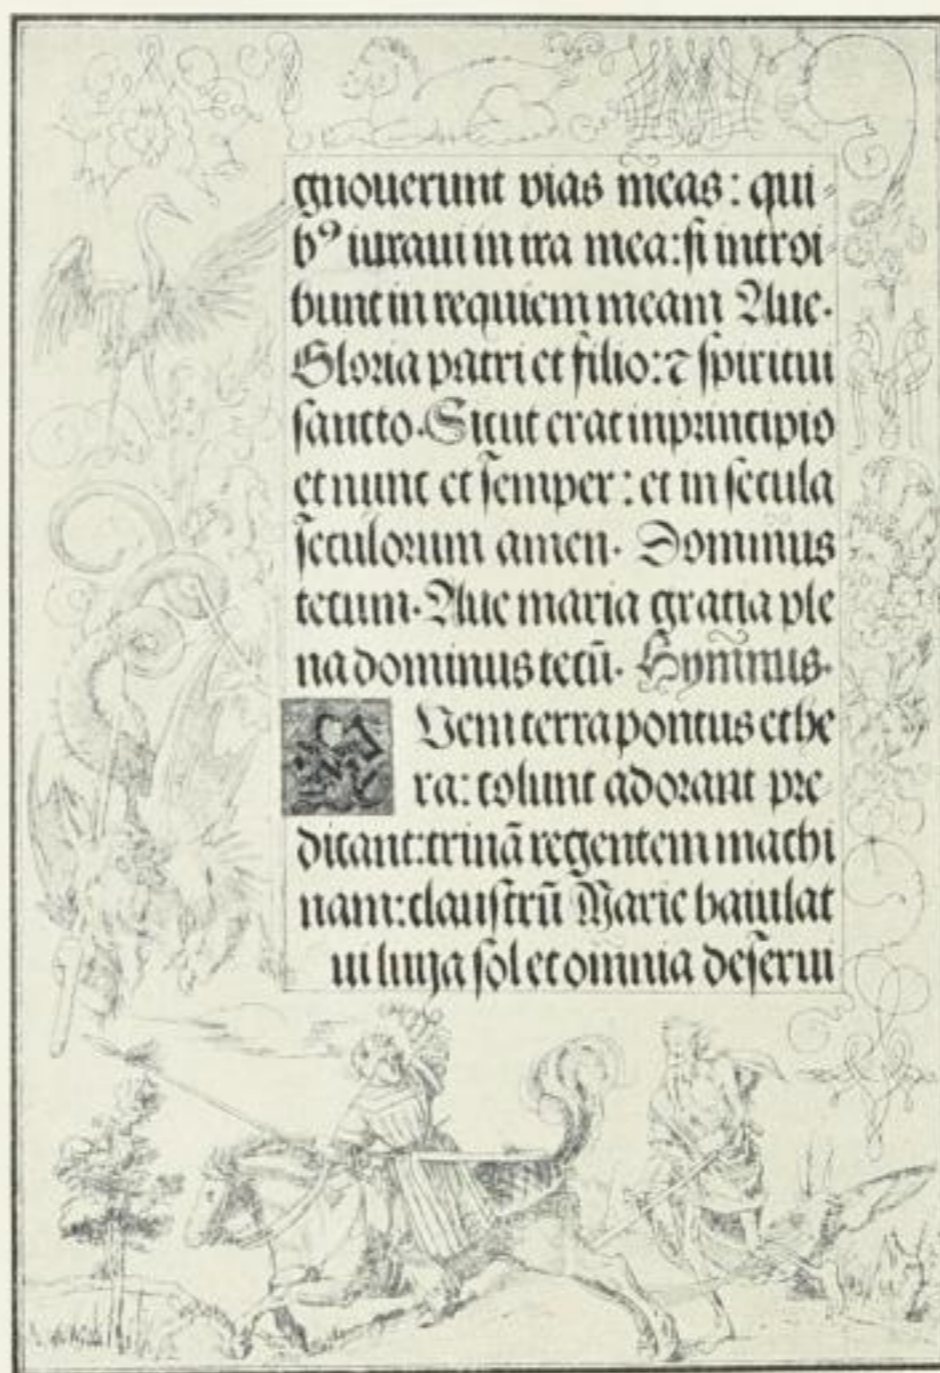 gnouerunt vias meas: qui
bꝰ iuraui in ira mea: ſi introi
bunt in requiem meam Aue.
Gloria patri et filio: ⁊ ſpiritui
ſancto. Sicut erat in principio
et nunc et ſemper: et in ſecula
ſeculorum amen. Dominus
tecum. Aue maria gratia ple
na dominus tecū. Hymnus.
QUem terra pontus ethe
ra: colunt adorant pre
dicant: trinā regentem machi
nam: clauſtrū Marie baiulat
ui luna ſol et omnia deſerui